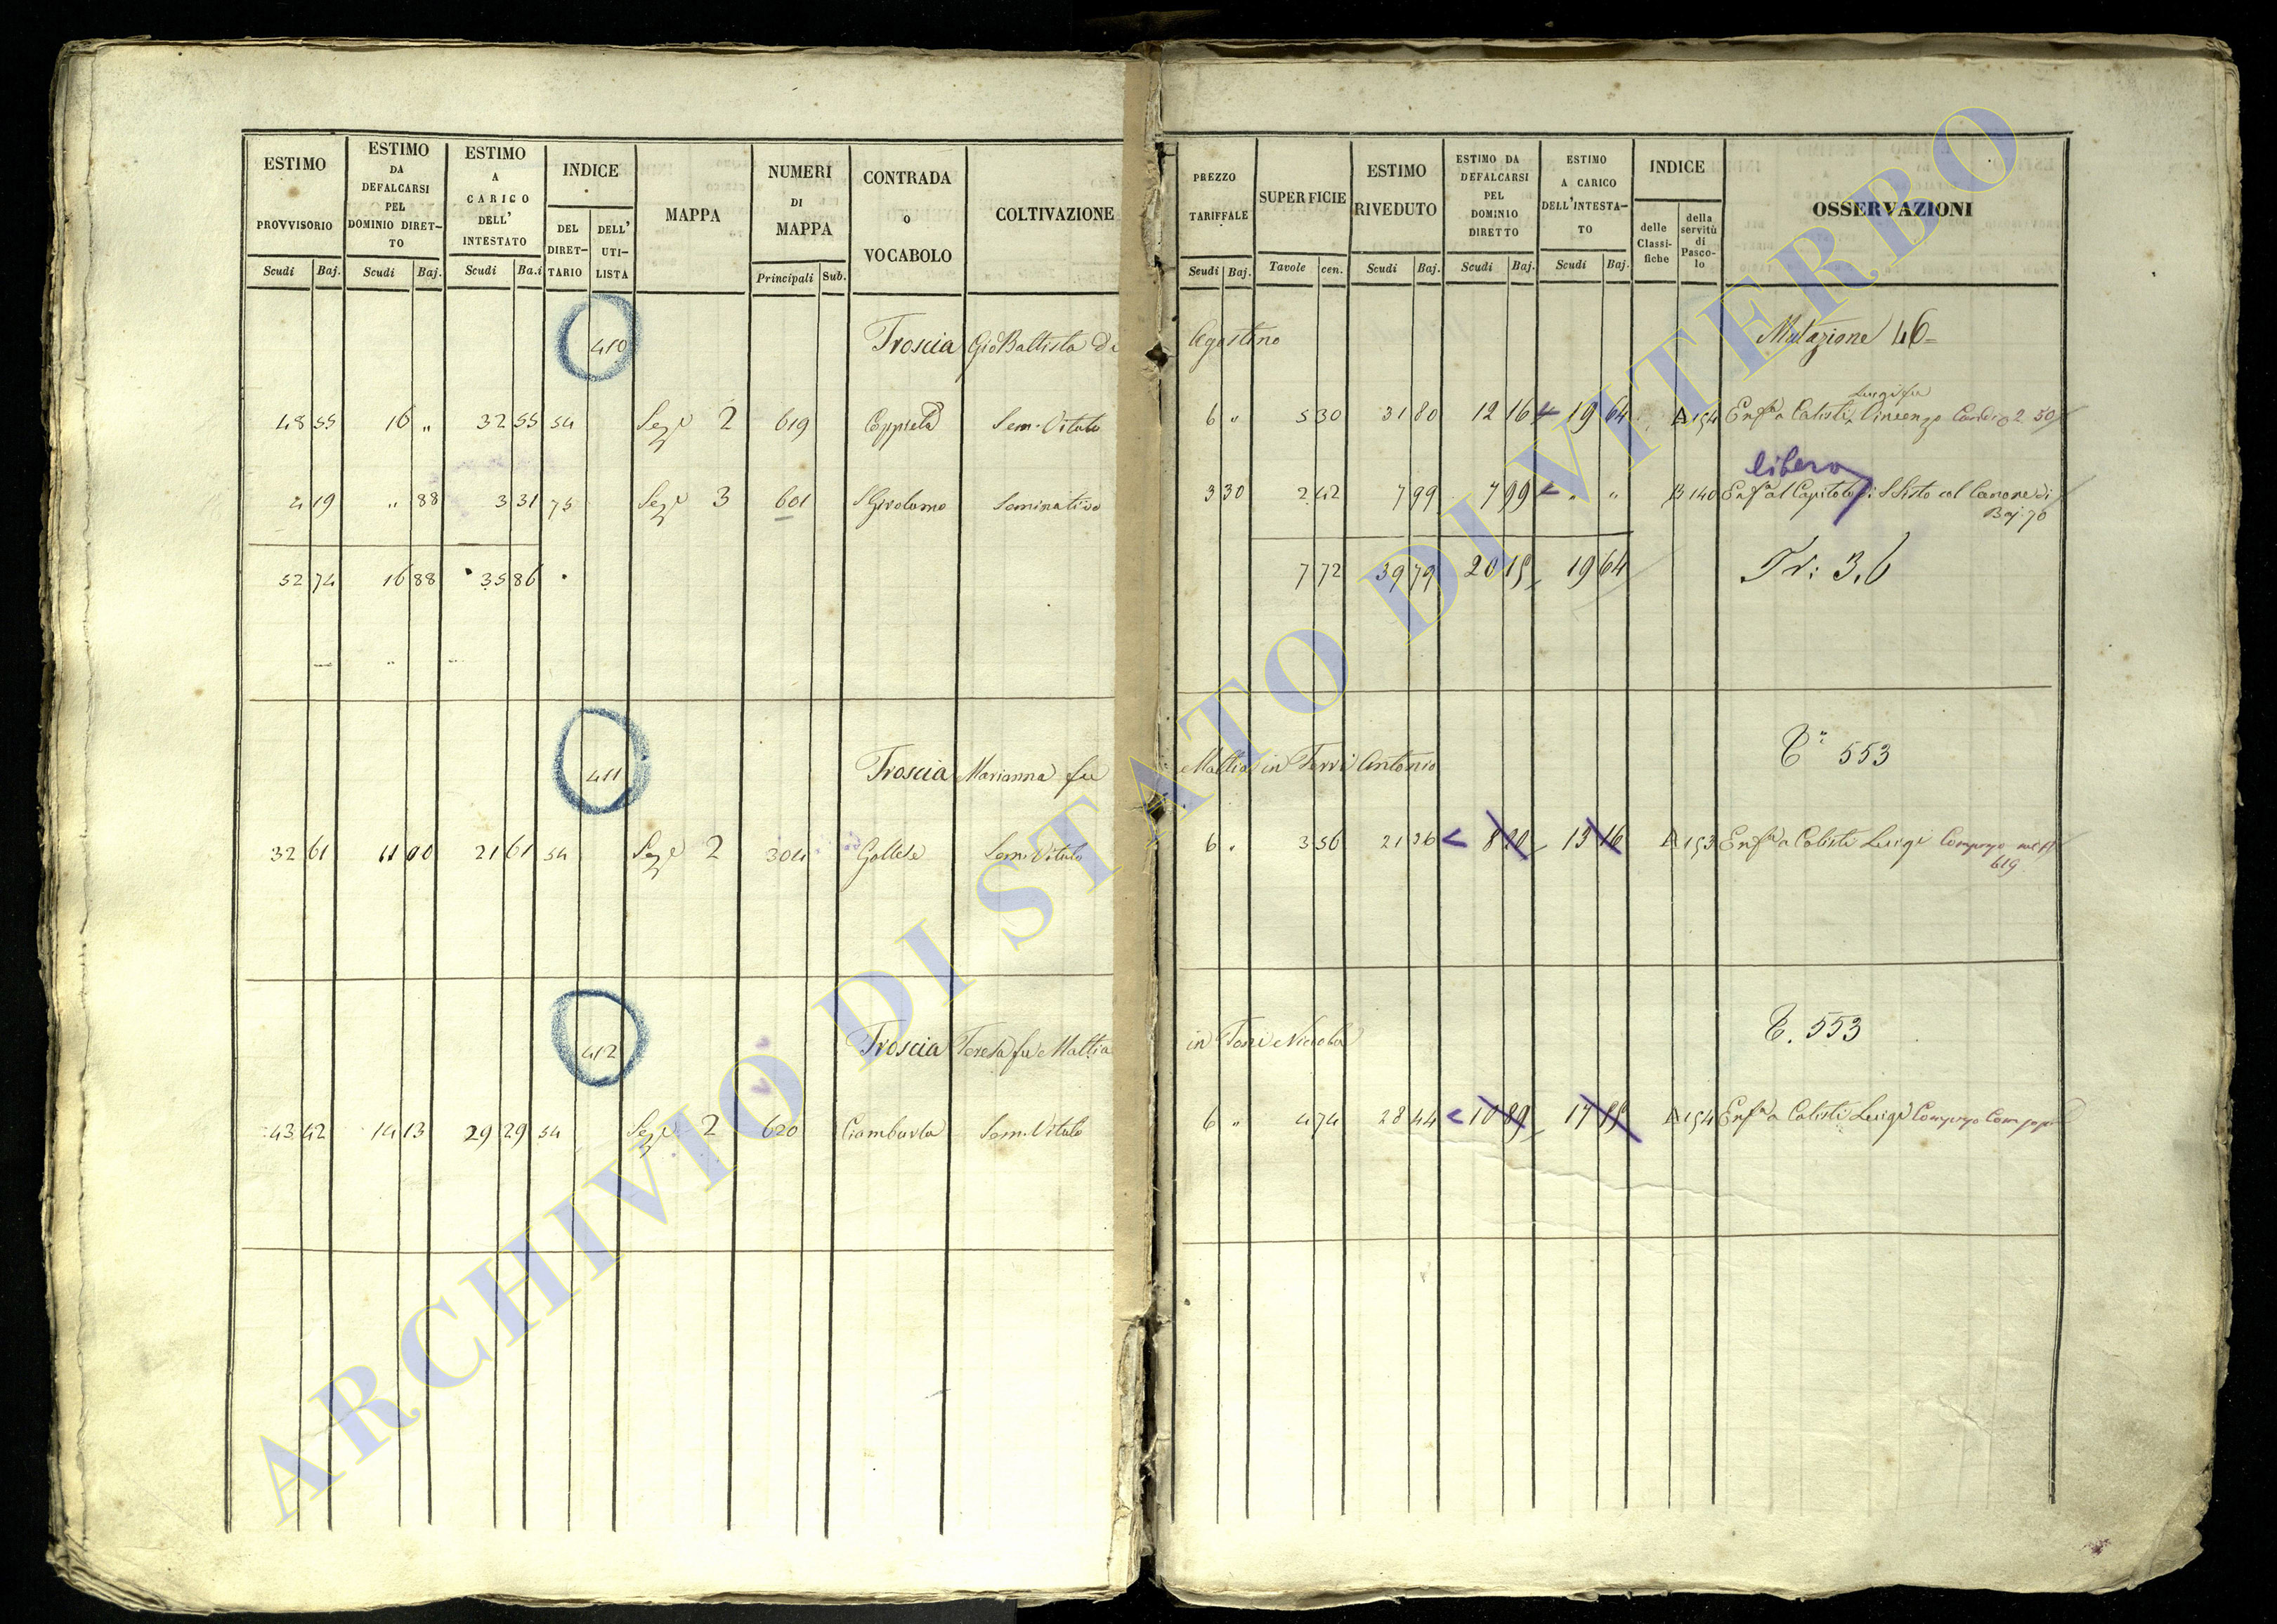 ESTIMO PROVVISORIO Scudi Baj.
ESTIMO DA DEFALCARSI PEL DOMINIO DIRETTO Scudi Baj.
ESTIMO A CARICO DELL' INTESTATO Scudi Ba.i
INDICE DEL DIRETTARIO DELL' UTILISTA
MAPPA
NUMERI DI MAPPA Principali Sub.
CONTRADA O VOCABOLO
COLTIVAZIONE
PREZZO TARIFFALE Scudi Baj.
SUPERFICIE Tavole cen.
ESTIMO RIVEDUTO Scudi Baj.
ESTIMO DA DEFALCARSI PEL DOMINIO DIRETTO Scudi Baj.
ESTIMO A CARICO DELL' INTESTATO Scudi Baj.
INDICE delle Classifiche della servitù di Pascolo
OSSERVAZIONI
410 Troscia Gio Battista di Agostino Mutazione 46
Luigi fu
48 55 16 " 32 55 54 Sez.e 2 619 Sem. Vitato 6 " 5 30 31 80 12 16 19 64 A 154 Enf.a a Calisti Vincenzo 2 50
libero
4 19 " 88 3 31 75 Sez.e 3 601 S. Girolamo Seminativo 3 30 2 42 7 99 7 99 " " B 140 Enf.a al Capitolo di S Sisto col Canone di
Baj. 70
52 74 16 88 35 86 7 72 39 79 20 15 19 64 Tr: 3.6
411 Troscia Marianna fu Mattia in Ferri Antonio 553
32 61 11 00 21 61 54 Sez.e 2 304 Gallese Sem. Vitato 6 " 3 56 21 36 8 20 13 16 A 153 Enf.a a Calisti Luigi Compreso
619
412 Troscia Teresa fu Mattia in 553
43 42 14 13 29 29 54 Sez.e 2 620 Ciambarla Sem. Vitato 6 " 4 74 28 44 10 89 17 55 A 154 Enf.a a Calisti Luigi Compreso
ARCHIVIO DI STATO DI VITERBO